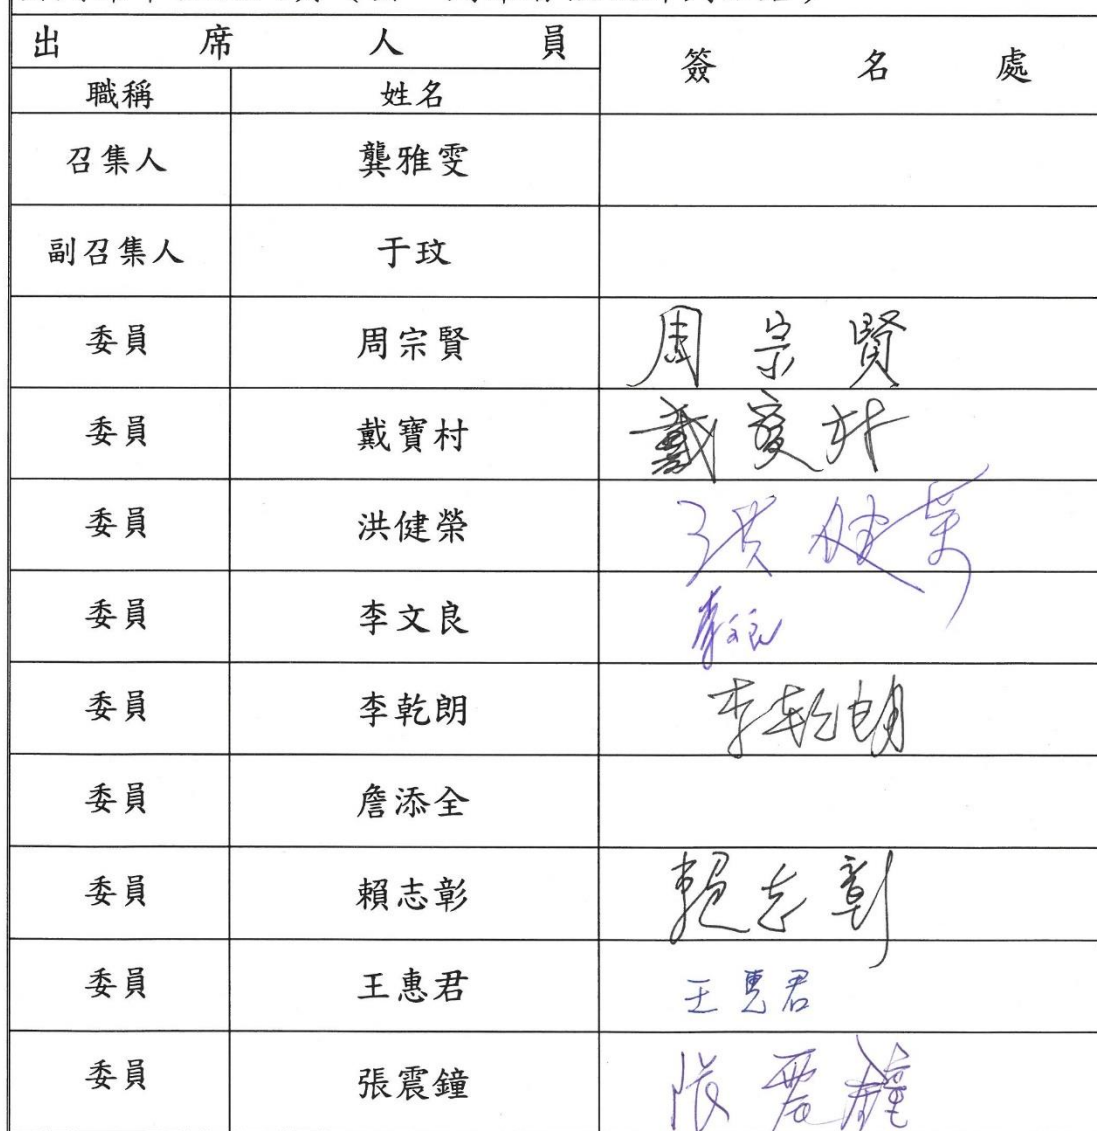 出席人員 簽名處
職稱 姓名
召集人 龔雅雯
副召集人 于玟
委員 周宗賢 周宗賢
委員 戴寶村 戴寶村
委員 洪健榮 洪健榮
委員 李文良 李文良
委員 李乾朗 李乾朗
委員 詹添全
委員 賴志彰 賴志彰
委員 王惠君 王惠君
委員 張震鐘 張震鐘